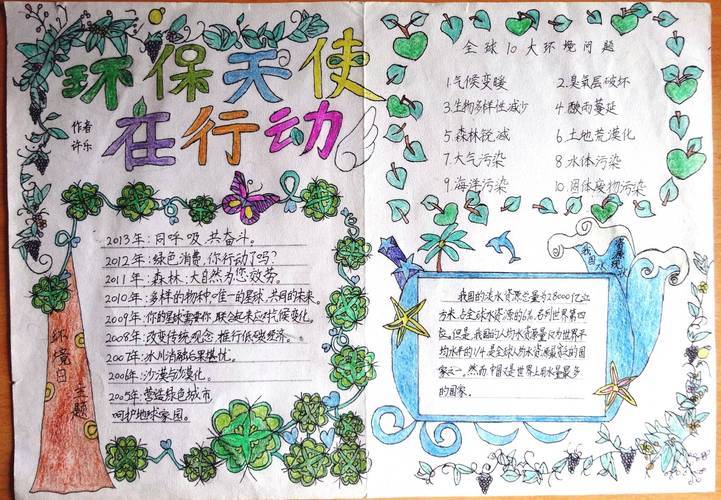 环保天使
在行动
作者
许乐
2013年:同呼吸 共奋斗。
2012年:绿色消费,你行动了吗?
2011年:森林:大自然为您效劳。
2010年:多样的物种·唯一的星球·共同的未来。
2009年:你的星球需要你 联合起来应对气候变化。
2008年:改变传统观念 推行低碳经济。
2007年:冰川消融后果堪忧。
2006年:沙漠与荒漠化。
2005年:营造绿色城市
呵护地球家园。
环境日主题
全球10大环境问题
1.气候变暖
2.臭氧层破坏
3.生物多样性减少
4.酸雨蔓延
5.森林锐减
6.土地荒漠化
7.大气污染
8.水体污染
9.海洋污染
10.固体废物污染
我国水
资源现
我国的淡水资源总量为28000亿立
方米,占全球水资源的6%,名列世界第四
位。但是,我国的人均水资源量仅为世界平
均水平的1/4,是全球人均水资源最贫乏的国
家之一。然而中国又是世界上用水量最多
的国家。